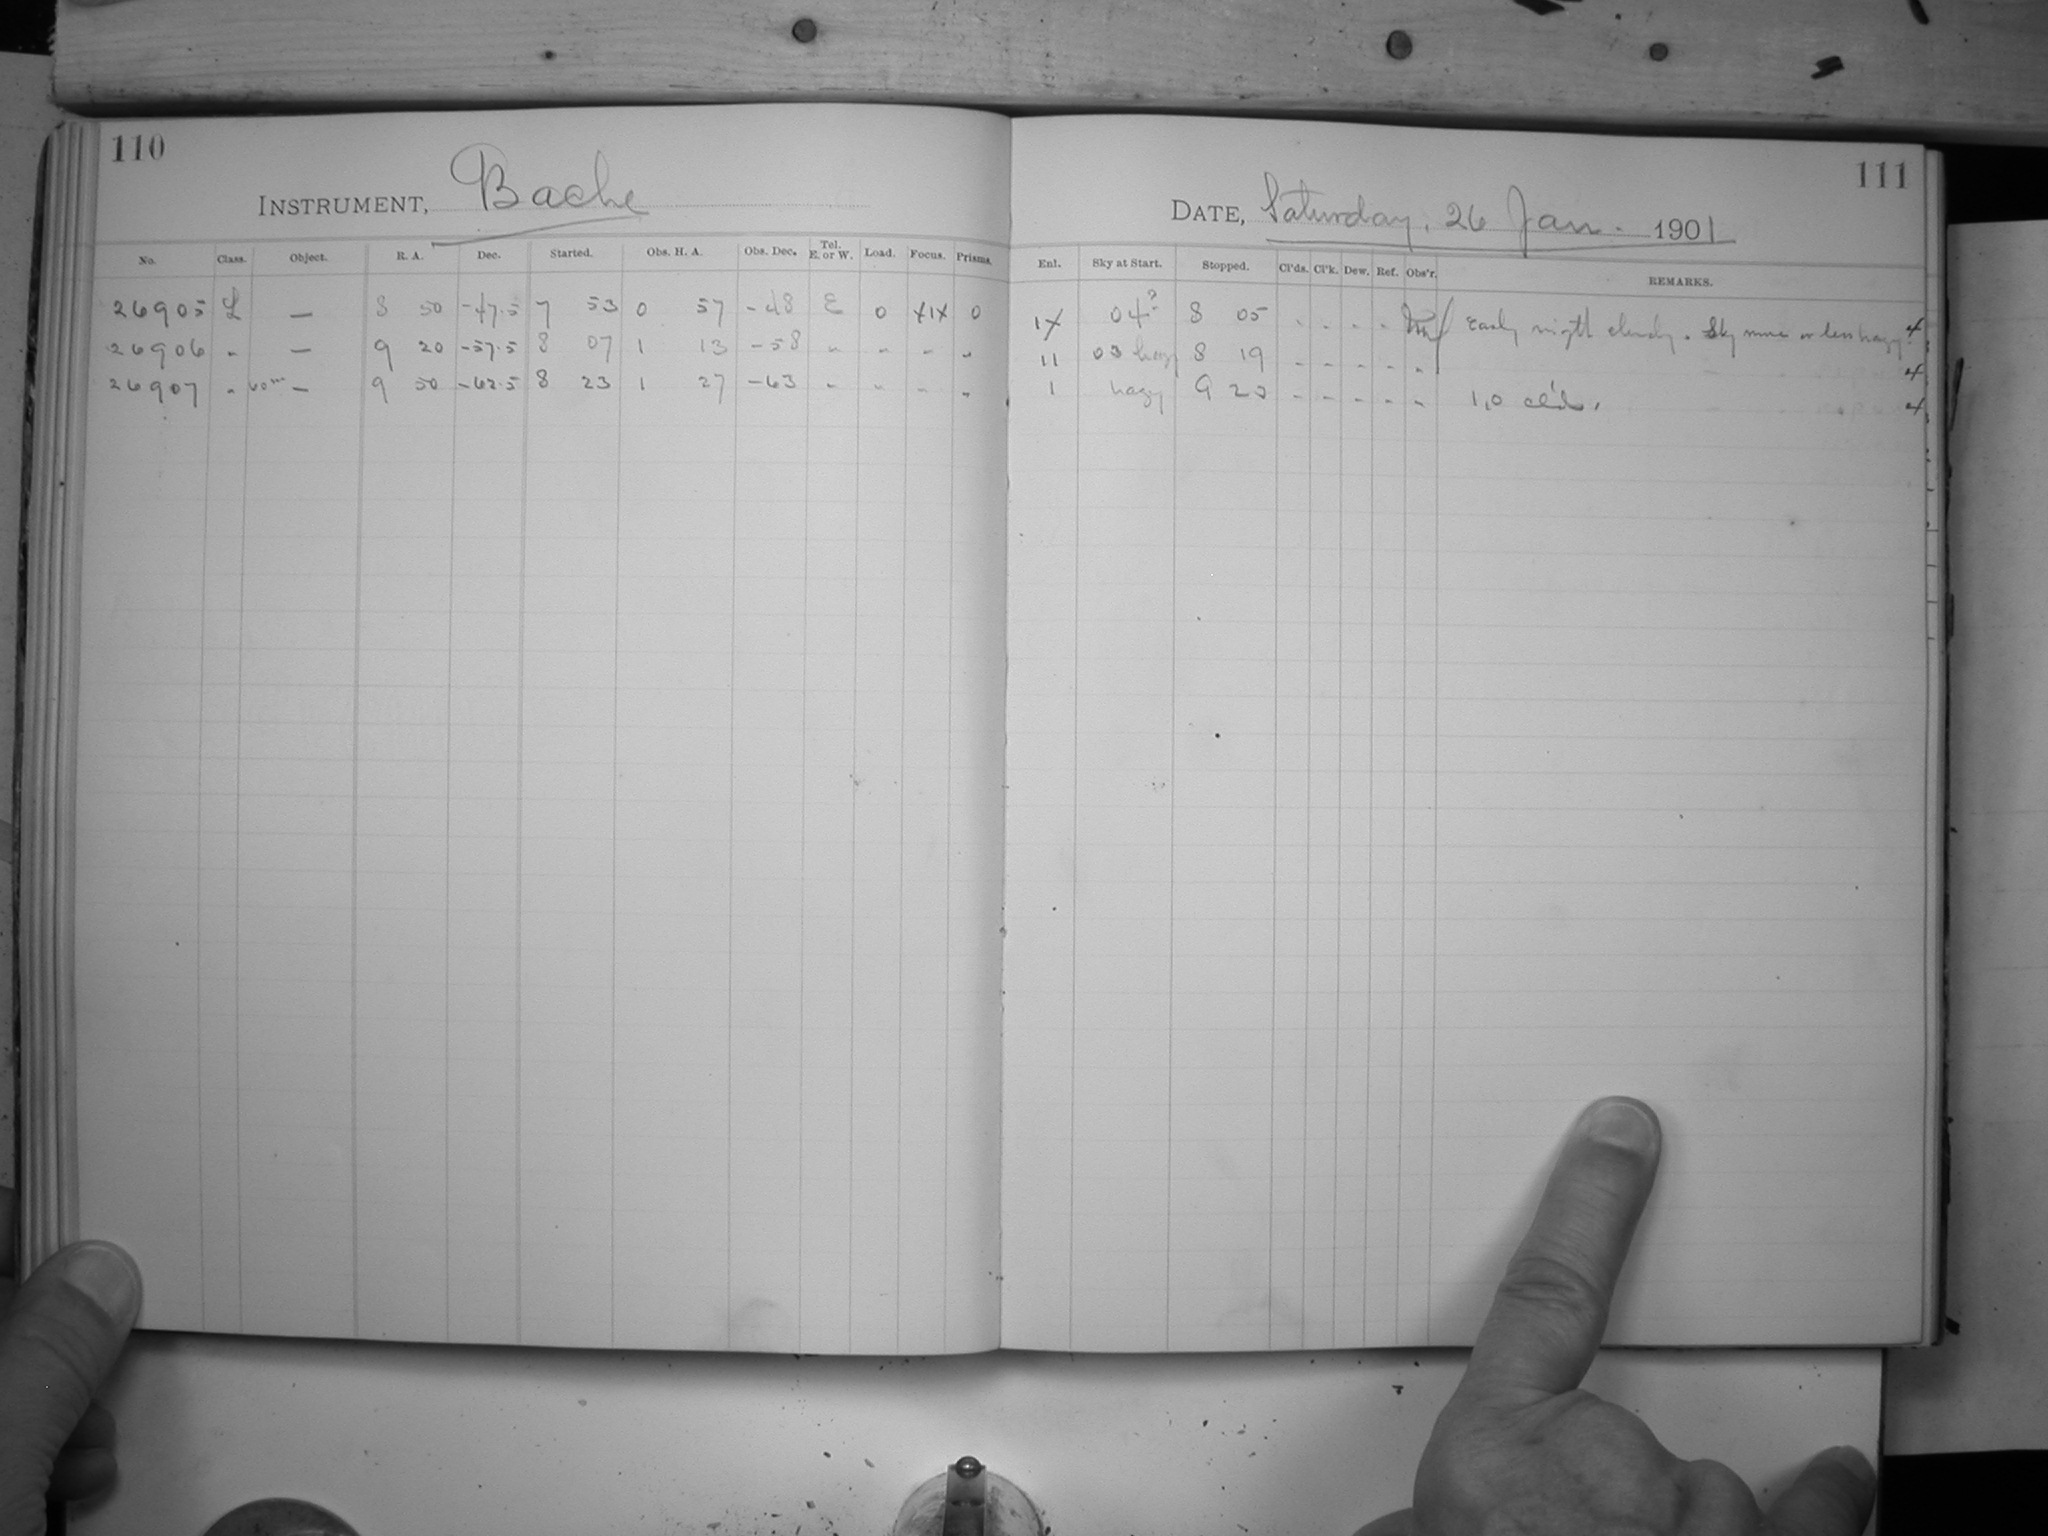 110
INSTRUMENT, Bache
No. Class. Object. R. A. Dec. Started. Obs. H. A. Obs. Dec. Tel. E. or W. Load. Focus. Prisms.
26905 L — 8 50 -47.5 7 53 0 57 -48 E 0 0
26906 " — 9 20 -57.5 8 07 1 13 -58 " " " "
26907 " 60m — 9 50 -62.5 8 23 1 27 -63 " " " "
111
DATE, Saturday, 26 Jan. 1901
Enl. Sky at Start. Stopped. Cl'ds. Cl'k. Dew. Ref. Obs'r. REMARKS.
04? 8 05 Early night cloudy. Sky more or less hazy. 4
11 03 hazy 8 19 4
1 hazy 9 23 1,0 cl'ds. 4